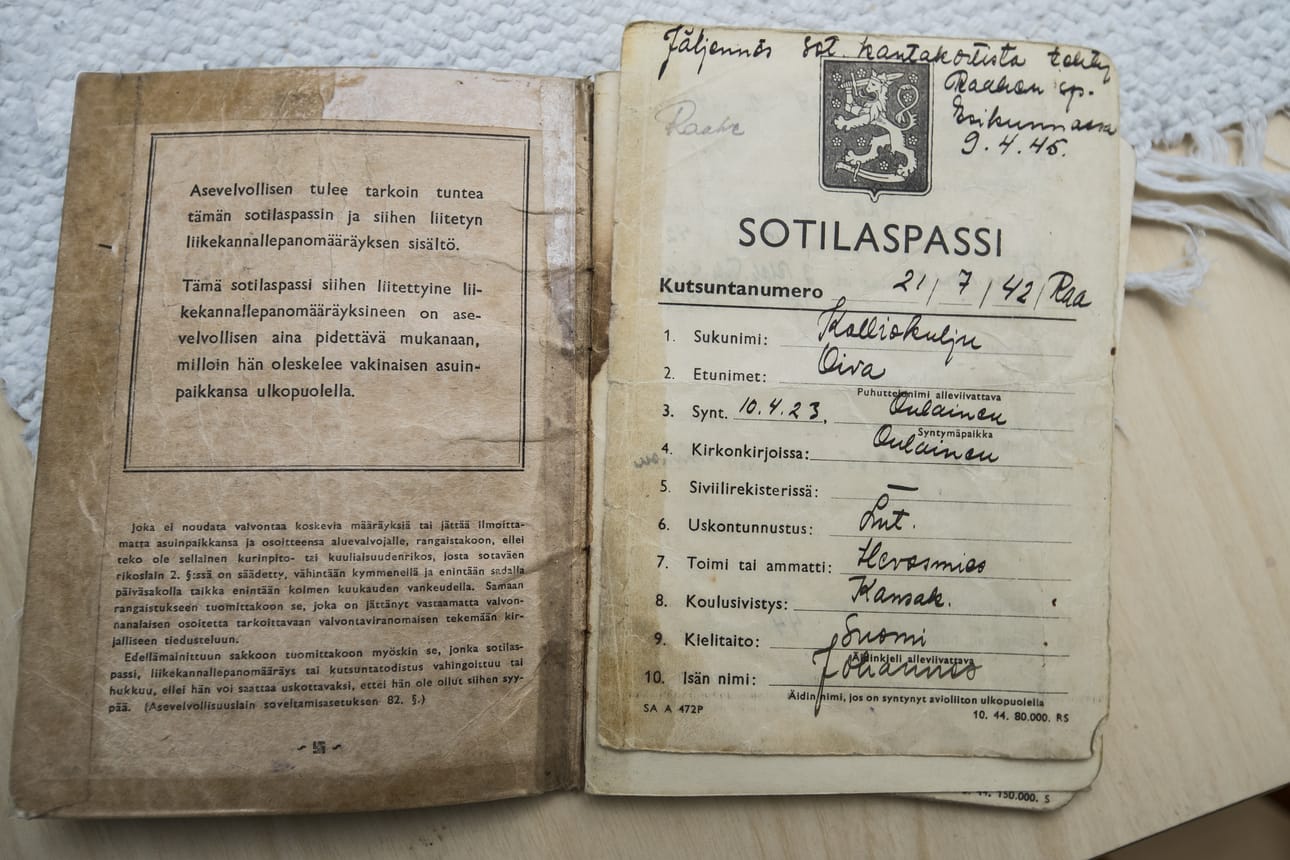 Asevelvollisen tulee tarkoin tuntea
tämän sotilaspassin ja siihen liitetyn
liikekannallepanomääräyksen sisältö.
Tämä sotilaspassi siihen liitettyine lii-
kekannallepanomääräyksineen on ase-
velvollisen aina pidettävä mukanaan,
milloin hän oleskelee vakinaisen asuin-
paikkansa ulkopuolella.
Joka ei noudata valvontaa koskevia määräyksiä tai jättää ilmoitta-
matta asuinpaikkansa ja osoitteensa aluevalvojalle, rangaistakoon, ellei
teko ole sellainen kurinpito- tai kuuliaisuudenrikos, josta sotaväen
rikoslain 2. §:ssä on säädetty, vähintään kymmenellä ja enintään sadalla
päiväsakolla taikka enintään kolmen kuukauden vankeudella. Samaan
rangaistukseen tuomittakoon se, joka on jättänyt vastaamatta valvon-
nanalaisen osoitetta tarkoittavaan valvontaviranomaisen tekemään kir-
jalliseen tiedusteluun.
Edellämainittuun sakkoon tuomittakoon myöskin se, jonka sotilas-
passi, liikekannallepanomääräys tai kutsuntatodistus vahingoittuu tai
hukkuu, ellei hän voi saattaa uskottavaksi, ettei hän ole ollut siihen syy-
pää. (Asevelvollisuuslain soveltamisasetuksen 82. §.)
Jäljennös sot. kantakortista tehty
Raahen sp.
Esikunnassa
9.4.45.
Raahe
SOTILASPASSI
Kutsuntanumero 21/7/42/Raa
1. Sukunimi: Kalliokulju
2. Etunimet: Oiva
Puhuttelunimi alleviivattava
3. Synt. 10.4.23, Oulainen
Syntymäpaikka
4. Kirkonkirjoissa: Oulainen
5. Siviilirekisterissä: —
6. Uskontunnustus: Lut.
7. Toimi tai ammatti: Hevosmies
8. Koulusivistys: Kansak.
9. Kielitaito: Suomi
Äidinkieli alleviivattava
10. Isän nimi: Johannes
Äidin nimi, jos on syntynyt avioliiton ulkopuolella
SA A 472P
10. 44. 80.000. RS
44. 150.000. S